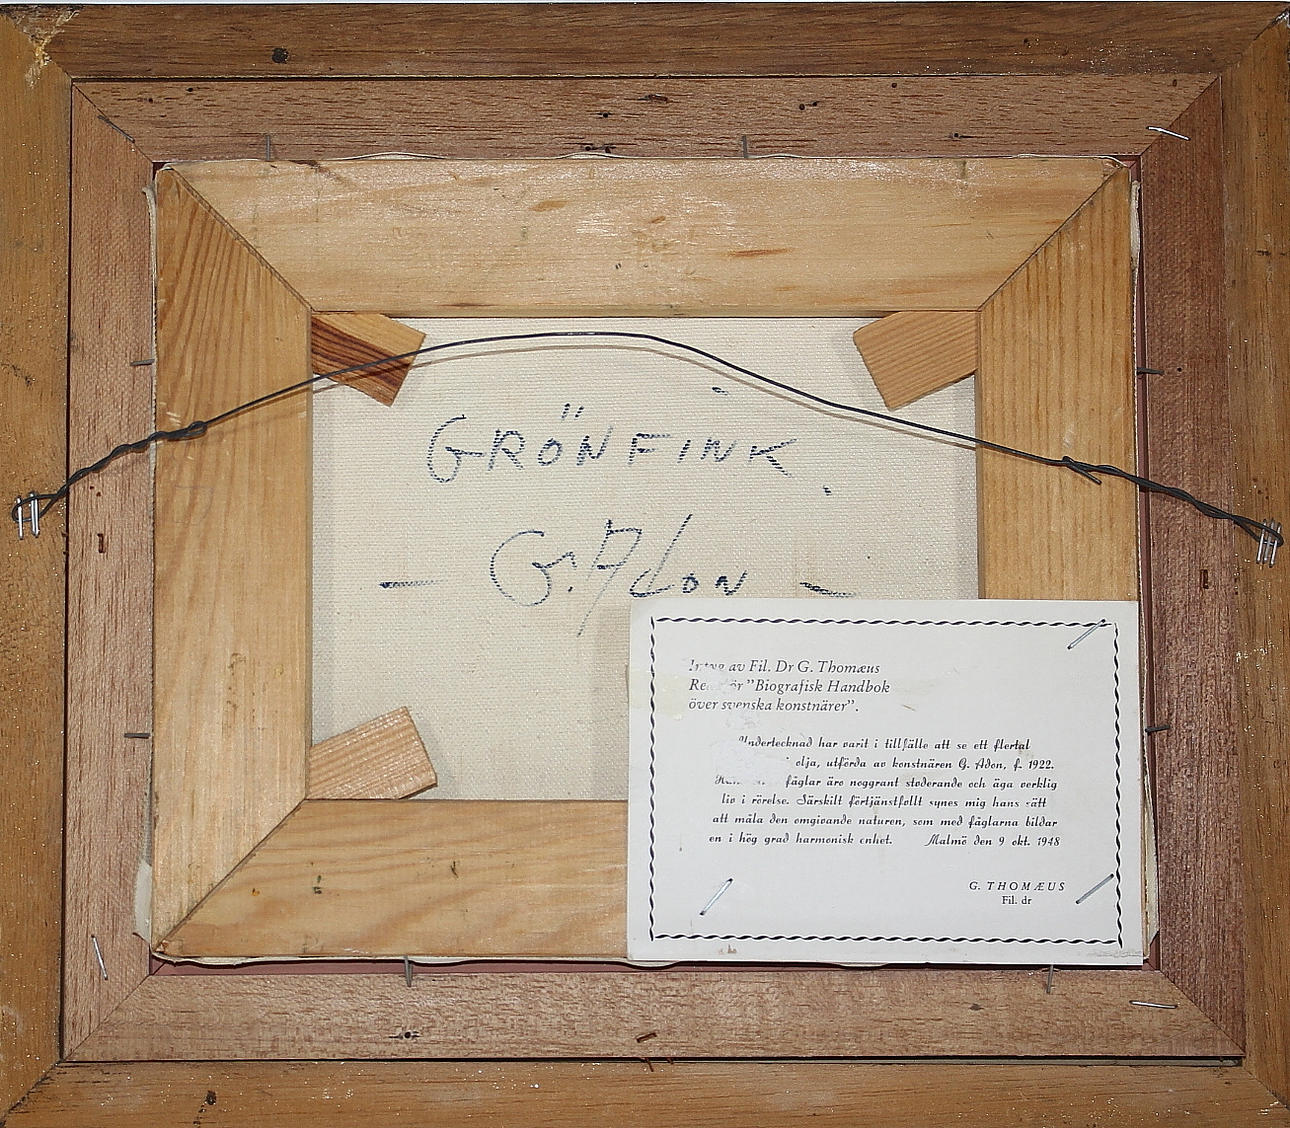 GRÖNFINK.
— G. Adon —
av Fil. Dr G. Thomæus
"Biografisk Handbok
över svenska konstnärer".
Undertecknad har varit i tillfälle att se ett flertal
olja, utförda av konstnären G. Adon, f. 1922.
fåglar äro noggrant studerande och äga verklig
liv i rörelse. Särskilt förtjänstfullt synes mig hans sätt
att måla den omgivande naturen, som med fåglarna bildar
en i hög grad harmonisk enhet. Malmö den 9 okt. 1948
G. THOMÆUS
Fil. dr